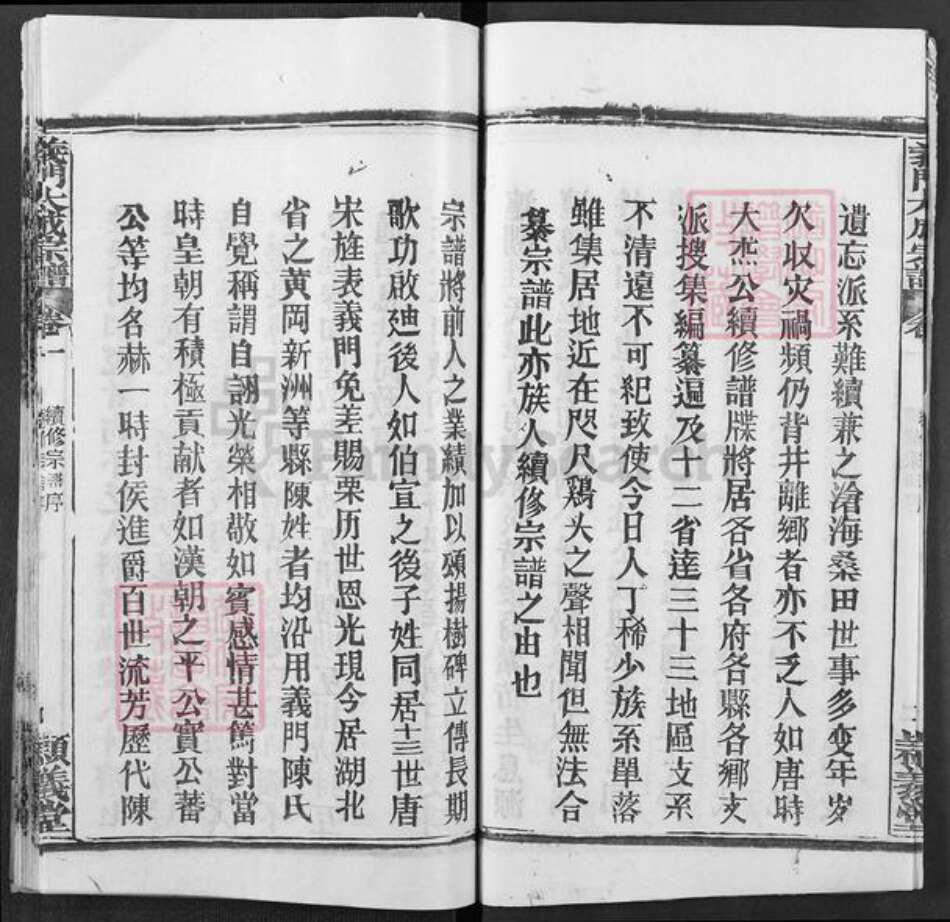 遺忘派系難續兼之滄海桑田世事多变年岁
欠収灾禍頻仍背井離鄉者亦不乏人如唐時
大杰公續修譜牒將居各省各府各縣各鄉支
派搜集編纂遍及十二省達三十三地區支系
不清遠不可紀致使今日人丁稀少族系單落
雖集居地近在咫尺鷄犬之聲相聞但無法合
纂宗譜此亦族人續修宗譜之由也
宗譜將前人之業績加以頌揚樹碑立傳長期
歌功啟廸後人如伯宣之後子姓同居十三世唐
宋旌表義門免差賜栗历世恩光現今居湖北
省之黃岡新洲等縣陳姓者均沿用義門陳氏
自覺稱謂自詡光榮相敬如賓感情甚篤對當
時皇朝有積極貢献者如漢朝之平公實公蕃
公等均名赫一時封侯進爵百世流芳歷代陳
義門大成宗譜
卷一
續修宗譜序
義堂
FamilySearch